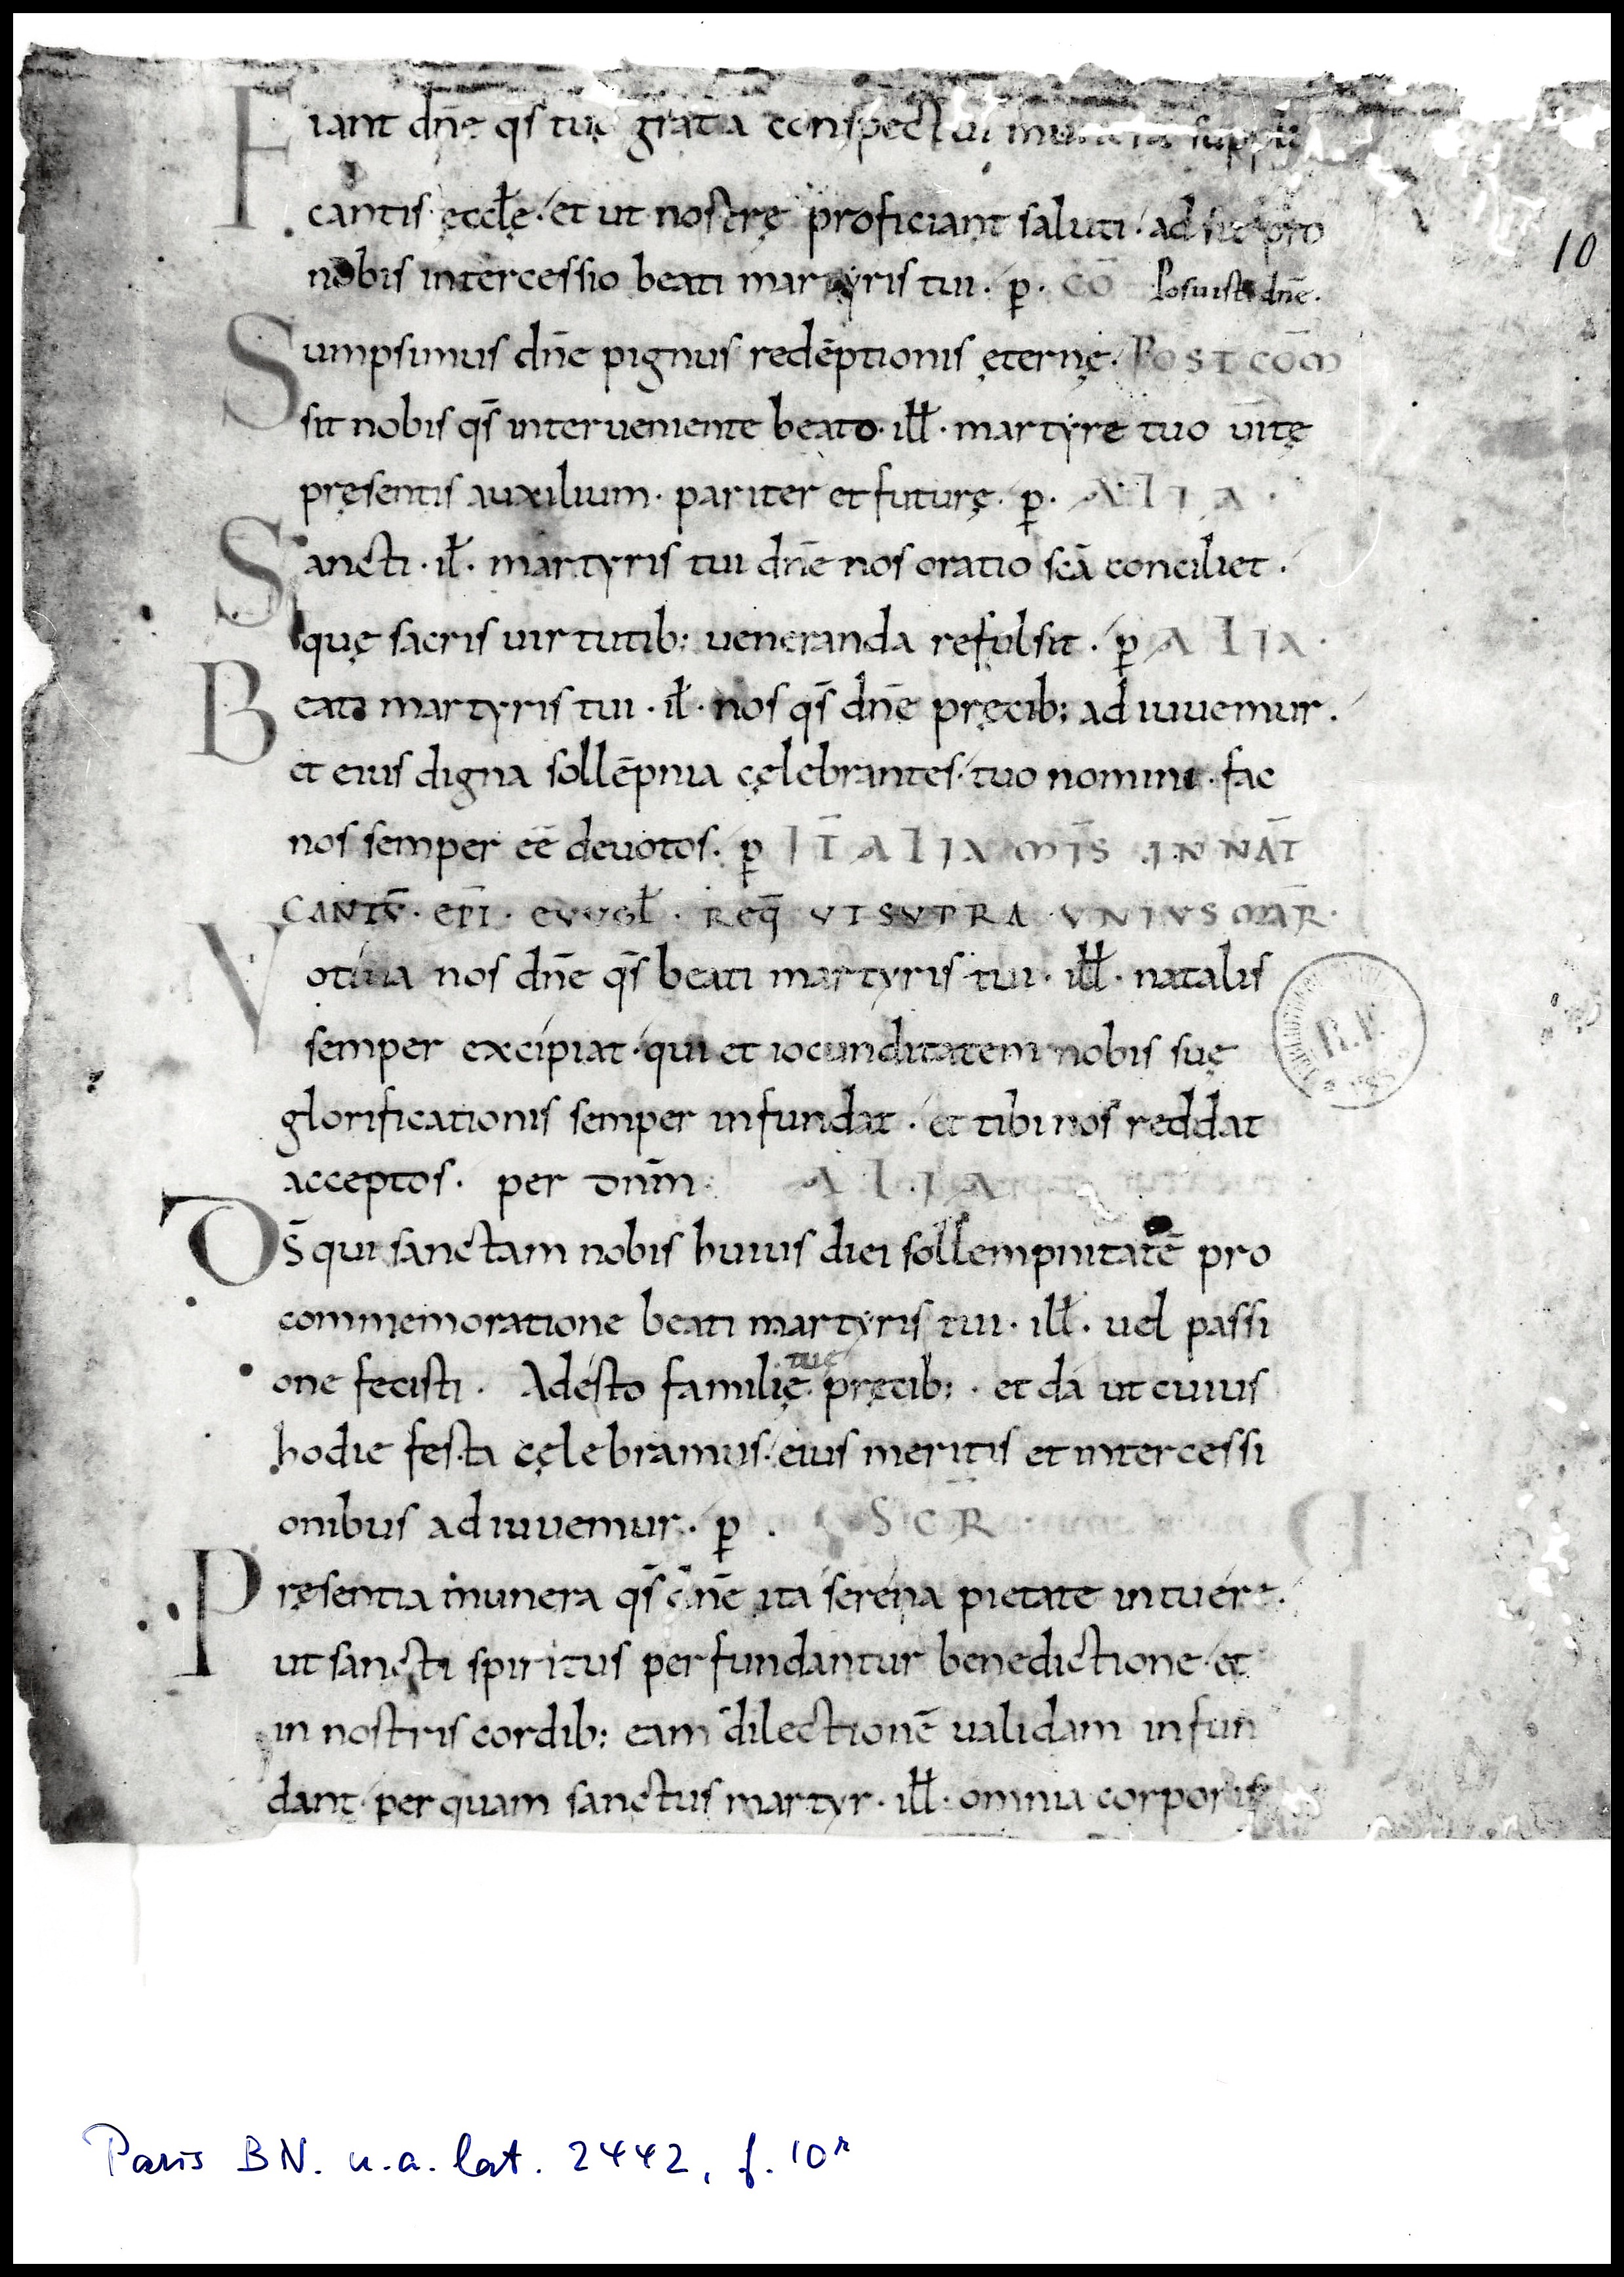 Fiant dn̄e qs̄ tuę grata conspectui munera suppli
cantis ęccl̄ę. et ut nostrę proficiant saluti. adsit pro
10
nobis intercessio beati martyris tui. p̱. CŌ Posuisti dn̄e.
Sumpsimus dn̄e pignus redēptionis ęternę. POSTCŌM
sit nobis qs̄ interueniente beato. ill̄. martyre tuo uitę
pręsentis auxilium. pariter et futurę. p̱. ALIA.
Sancti. il̄. martyris tui dn̄e nos oratio scā conciliet.
quę sacris uirtutib; ueneranda refulsit. p̱ ALIA.
Beati martyris tui. il̄. nos qs̄ dn̄e pręcib; adiuuemur.
et eius digna sollēpnia cęlebrantes. tuo nomini. fac
nos semper eē deuotos. p̱ IT̄ ALIA MIS̄ IN NAT̄
CANTV̄. EPĪ. EVVGL̄. REQ̄ VT SVPRA VNIVS MAR̄.
Votiua nos dn̄e qs̄ beati martyris tui. ill̄. natalis
semper excipiat. qui et iocunditatem nobis suę
glorificationis semper infundat. et tibi nos reddat
acceptos. per dnm̄. ALIA
R.F.
DS̄ qui sanctam nobis huius diei sollempnitatē pro
commemoratione beati martyris tui. ill̄. uel passi
tuę
one fecisti. Adesto familię pręcib;. et da ut cuius
hodie festa cęlebramus. eius meritis et intercessi
onibus adiuuemur. p̱. SCR̄
Pręsentia munera qs̄ dn̄e ita serena pietate intuere.
ut sancti spiritus perfundantur benedictione. et
in nostris cordib; eam dilectionē ualidam infun
dant. per quam sanctus martyr. ill̄. omnia corporis
Paris BN. n.a. lat. 2442, f. 10r